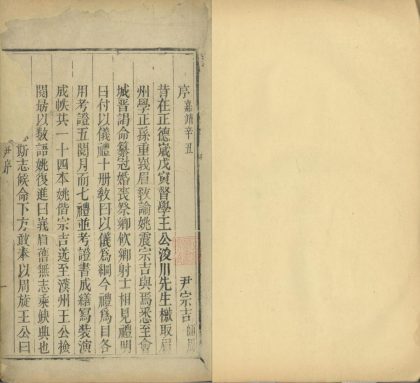 序 嘉靖辛丑
尹宗吉
昔在正德歲戊寅督學王公浚川先生檄取眉
州學正孫重峩眉教諭姚震宗吉與焉悉至會
城晋謁命纂冠婚喪祭鄉飲鄉射士相見禮明
日付以儀禮十册教曰以儀爲綱今禮爲目各
用考證五閱月而七禮並考證書成繕寫裝演
成帙共一十四本姚偕宗吉送至漢州王公檢
閱勗以數語姚復進曰峩眉舊無志乘缺典也
斯志候命下方敢奉以周旋王公曰
尹序